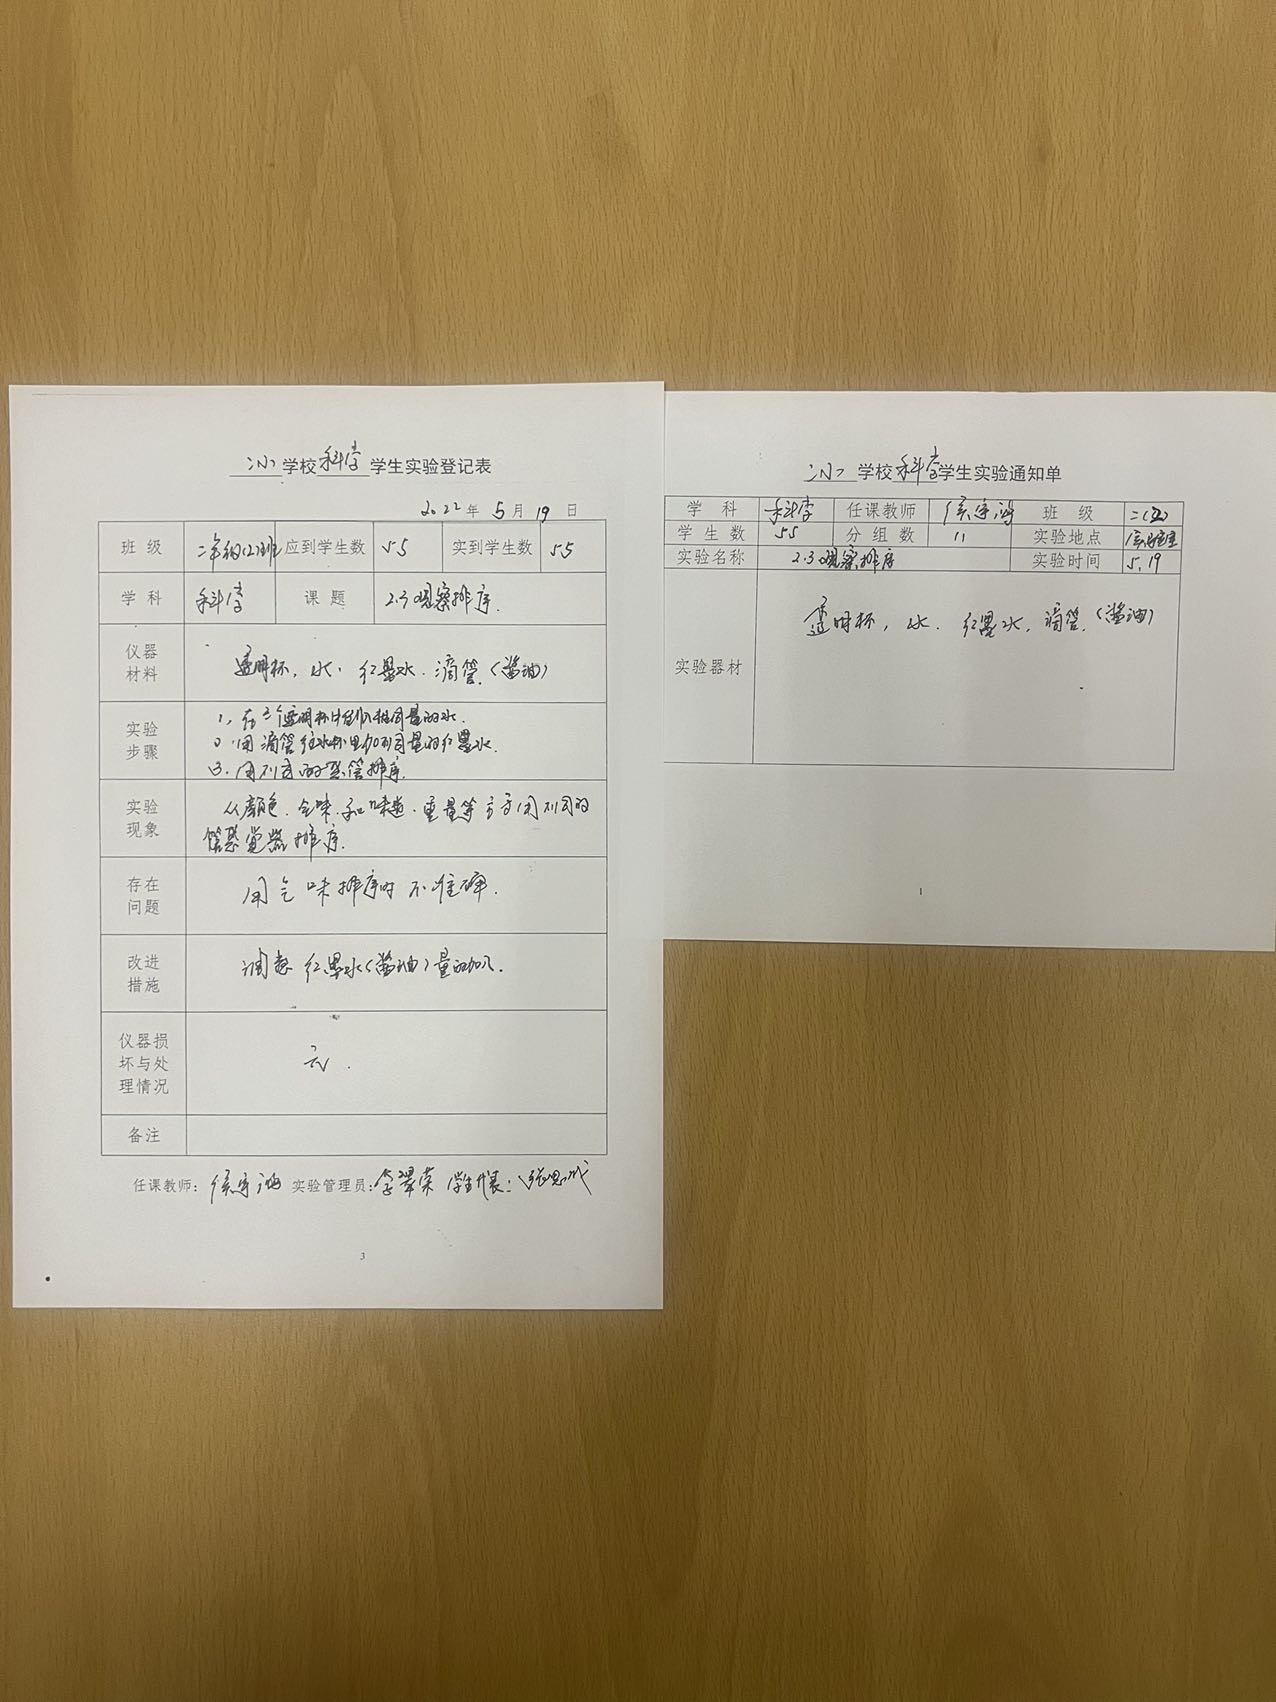 学校科学学生实验登记表
2022年5月19日
班级 二年级(2)班 应到学生数 55 实到学生数 55
学科 科学 课题 2.3观察排序.
仪器材料 透明杯, 水. 红墨水. 滴管. (酱油)
实验步骤 1, 在三个透明杯中倒入相同量的水.
2. 用滴管往水杯里加不同量的红墨水.
3. 用不同的感官排序.
实验现象 从颜色. 气味. 和味道. 重量等 用不同的
感觉器排序.
存在问题 用气味排序时不准确.
改进措施 调整红墨水(酱油)量的加入.
仪器损坏与处理情况 无.
备注
任课教师: 实验管理员: 李翠荣 学生代表:
3
学校科学学生实验通知单
学科 科学 任课教师 班级
学生数 55 分组数 11 实验地点 实验室
实验名称 2.3观察排序 实验时间 5.19
实验器材 透明杯, 水. 红墨水, 滴管. (酱油)
1